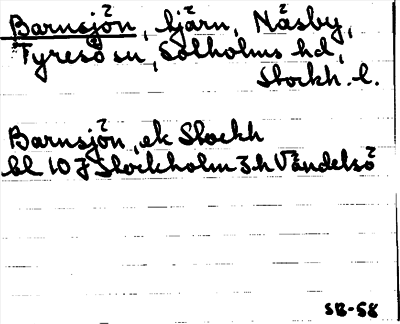 Barnsjön, tjärn, Näsby,
Tyresö sn, Sotholms hd,
Stockh. l.
Barnsjön, ek Stockh
bl 10 J Stockholm 3 h Vändelsö
SB-58